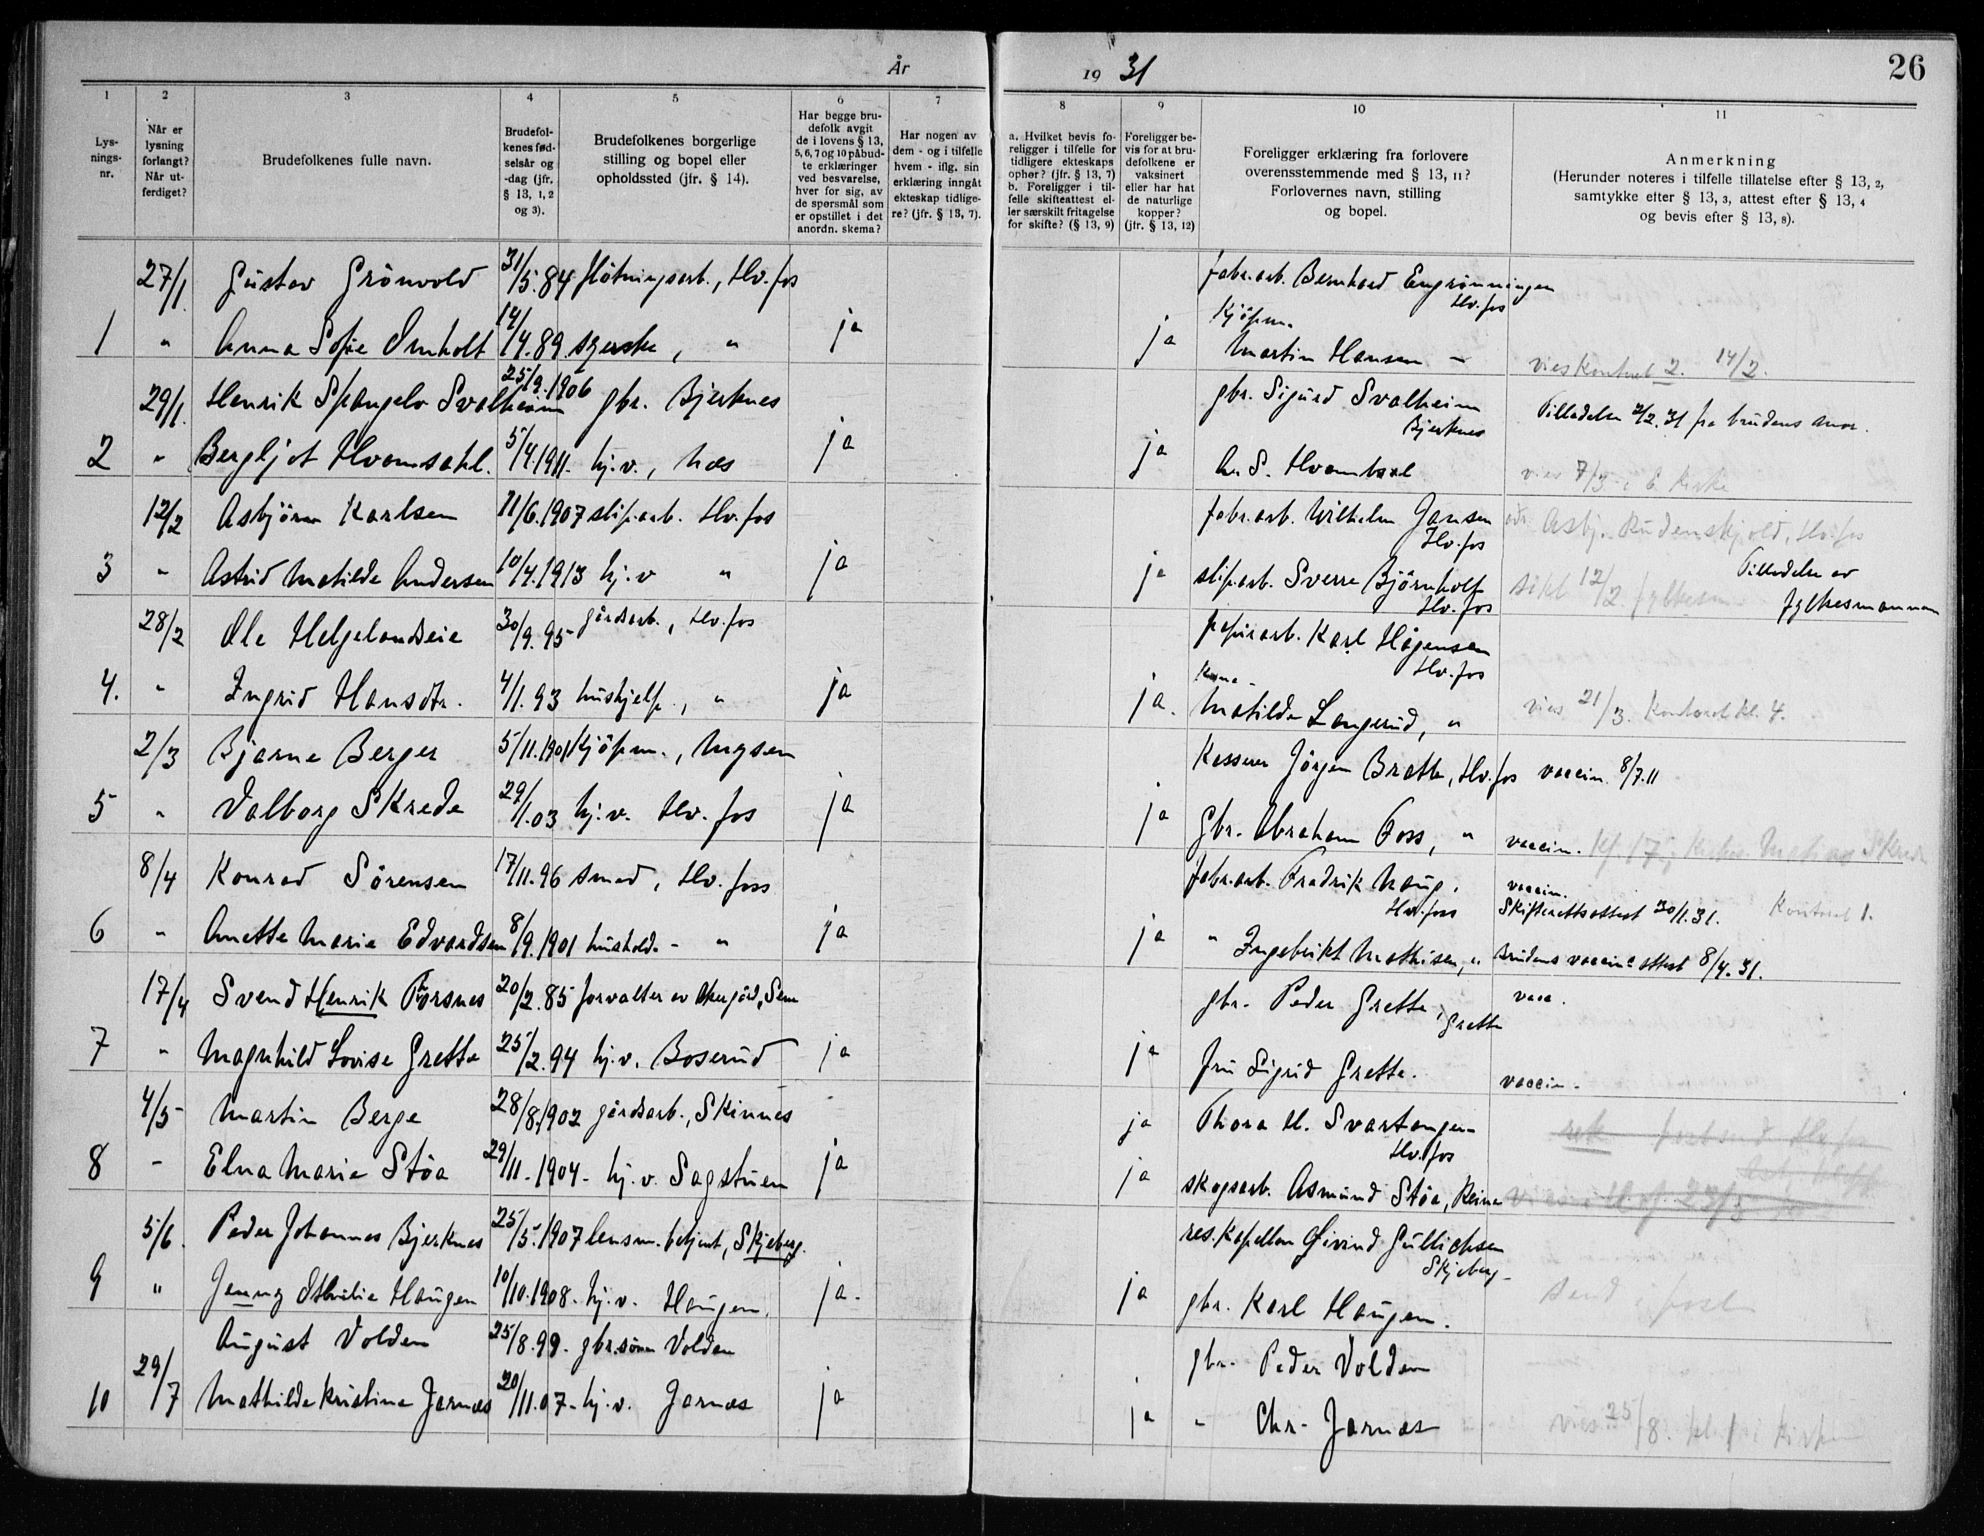 År 1931
26
1 2 3 4 5 6 7 8 9 10 11
Lysnings-nr.
Når er lysning forlangt? Når utferdiget?
Brudefolkenes fulle navn.
Brudefolkenes fødselsår og -dag (jfr. § 13, 1, 2 og 3).
Brudefolkenes borgerlige stilling og bopel eller opholdssted (jfr. § 14).
Har begge brudefolk avgit de i lovens § 13, 5, 6, 7 og 10 påbudte erklæringer ved besvarelse, hver for sig, av de spørsmål som er opstillet i det anordn. skema?
Har nogen av dem - og i tilfelle hvem - iflg. sin erklæring inngått ekteskap tidligere? (jfr. § 13, 7).
a. Hvilket bevis foreligger i tilfelle for tidligere ekteskaps ophør? (jfr. § 13, 7) b. Foreligger i tilfelle skifteattest eller særskilt fritagelse for skifte? (§ 13, 9)
Foreligger bevis for at brudefolkene er vaksinert eller har hat de naturlige kopper? (jfr. § 13, 12)
Foreligger erklæring fra forlovere overensstemmende med § 13, 11? Forlovernes navn, stilling og bopel.
Anmerkning (Herunder noteres i tilfelle tillatelse efter § 13, 2, samtykke efter § 13, 3, attest efter § 13, 4 og bevis efter § 13, 8).
27/1 Gustav Grönvold 31/5.84 fløtningsarb., Hv.fos fabr.arb. Bernhard Engrønningen Hv.fos
1 " Anna Sofie Omholt 14/4.89 syerske, " ja ja Kjöpm. Martin Hansen - vies Kontoret 2. 14/2.
29/1. Henrik Spangelo Svalheim 25/9.1906 gbr. Bjerknes gbr. Sigurd Svalheim Bjerknes Tilladelse 2/2.31 fra brudens
2 " Bergljot Hvamsahl. 5/4.1911. hj.v., Næs ja ja A. S. Hvamsahl vies 7/3 i kirke
12/2 Asbjörn Karlsen 11/6.1907 slip.arb. Hv.fos fabr.arb. Wilhelm Jansen Hv.fos Asbj. Rudenskjold, Hv.fos
3 " Astrid Matilde Andersen 10/4.1913 hj.v " ja ja slip.arb. Sverre Björnholt Hv.fos søkt 12/2. fylkesm. Tilladelse av fylkesmannen
28/2 Ole Helgelandseie 30/9.95 gårdsarb., Hv.fos papirarb. Karl Hågensen Hv.fos
4. " Ingrid Hansdtr. 4/1.93 hushjelp., " ja ja. Kone Matilde Langerud, " vies 21/3. Kontoret kl. 4.
2/3 Bjarne Berger 5/11.1901 Kjöpm., Mysen Kasserer Jörgen Bratte, Hv.fos vaccin. 8/7.11
5 " Valborg Skrede 29/1.03 hj.v. Hv.fos ja ja gbr. Abraham Foss, " vaccin. Kl. 17 Skrede
8/4 Konrad Sörensen 17/11.96 smed, Hv.foss fabr.arb. Fredrik Haug, Hv.foss vaccin. Skifterettsattest 30/1.31. Kontoret 1.
6 " Anette Marie Edvardsen 8/9.1901 hushold. - " ja ja " Ingebrikt Mathisen, " Brudens vaccin attest 8/4.31.
17/4 Svend Henrik Thorsnes 20/2.85 forvalter av Akergård, Sem gbr. Peder Grette, Grette vacc.
7 " Magnhild Lovise Grette 25/2.94 hj.v. Boserud ja ja fru Sigrid Grette. vaccin.
4/5 Martin Berge 28/8.1902 gårdsarb., Skinnes ja Thora H. Svartangen Hv.fos
8 - Elna Marie Stöa 29/11-1904- hj.v. Sagstuen ja ja skogsarb. Asmund Stöa, Reine vies i
5/6. Peder Johannes Bjerknes 25/5.1907 lensm. betjent, Skjeberg. res. Kapellan Øivind Gullichsen Skjeberg
9 " Jenny Othilie Haugen 10/10.1908- hj.v. Haugen. ja. ja gbr. Karl Haugen. send i posten
August Volden 25/8.99- gbr.sønn Volden gbr. Peder Volden
10 29/7 Mathilde Kristine Jarnæs 20/11.07- hj.v. Jarnæs ja ja " Chr. Jarnæs vies 25/8. kl. 1 i kirken